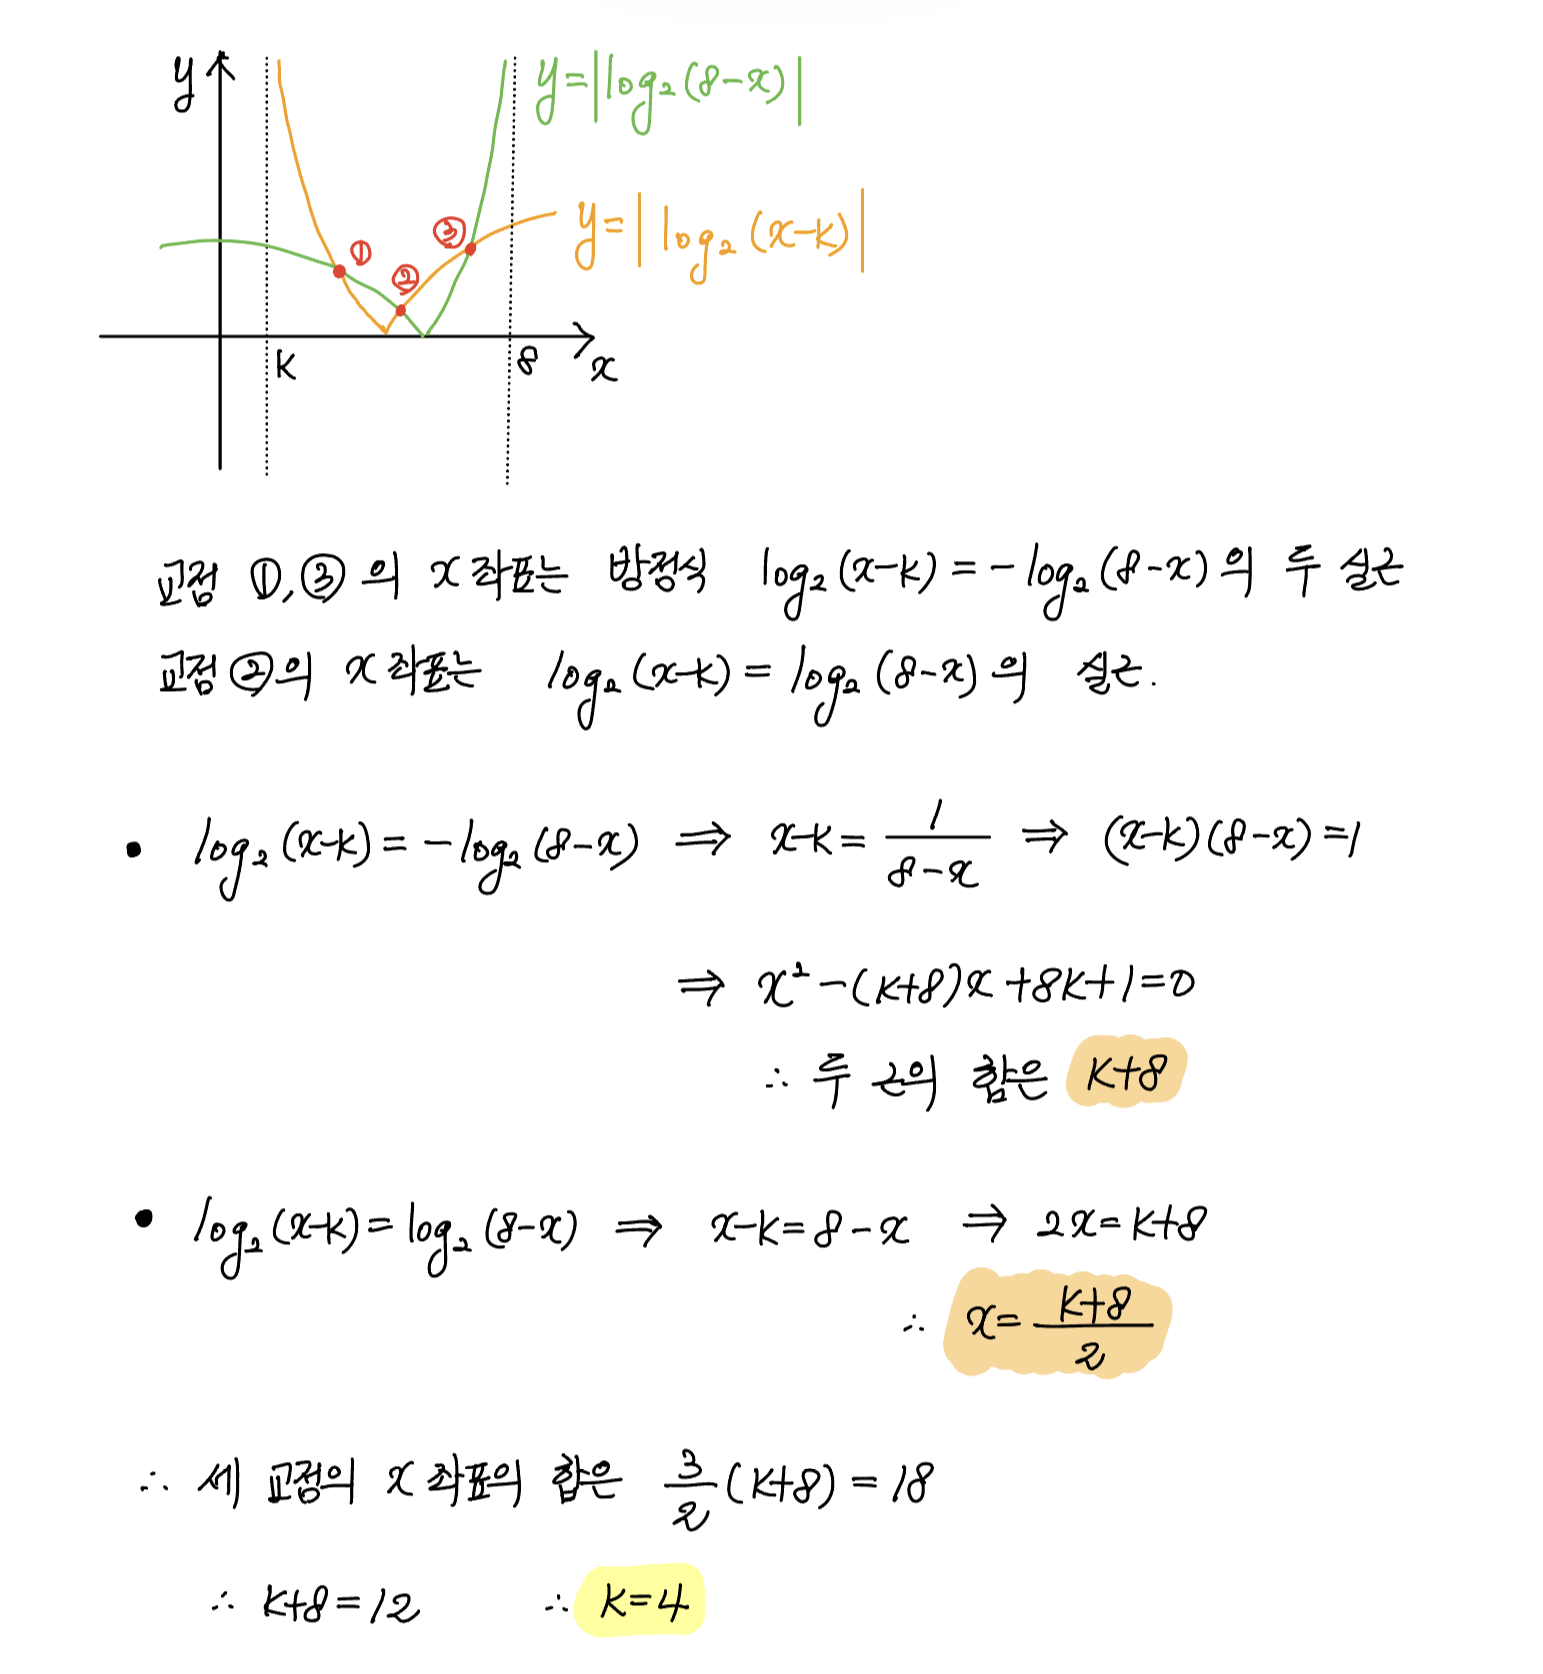 y
y=|log₂(8-x)|
③
①
②
y=|log₂(x-k)|
k
8
x
교점 ①,③의 x좌표는 방정식 log₂(x-k)=-log₂(8-x)의 두 실근
교점 ②의 x좌표는 log₂(x-k)=log₂(8-x)의 실근.
• log₂(x-k)=-log₂(8-x) ⇒ x-k=1/(8-x) ⇒ (x-k)(8-x)=1
⇒ x²-(k+8)x+8k+1=0
∴ 두 근의 합은 k+8
• log₂(x-k)=log₂(8-x) ⇒ x-k=8-x ⇒ 2x=k+8
∴ x=(k+8)/2
∴ 세 교점의 x좌표의 합은 3/2(k+8)=18
∴ k+8=12 ∴ k=4